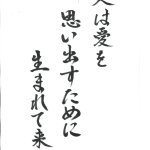 は愛を
思い出すために
生まれて来